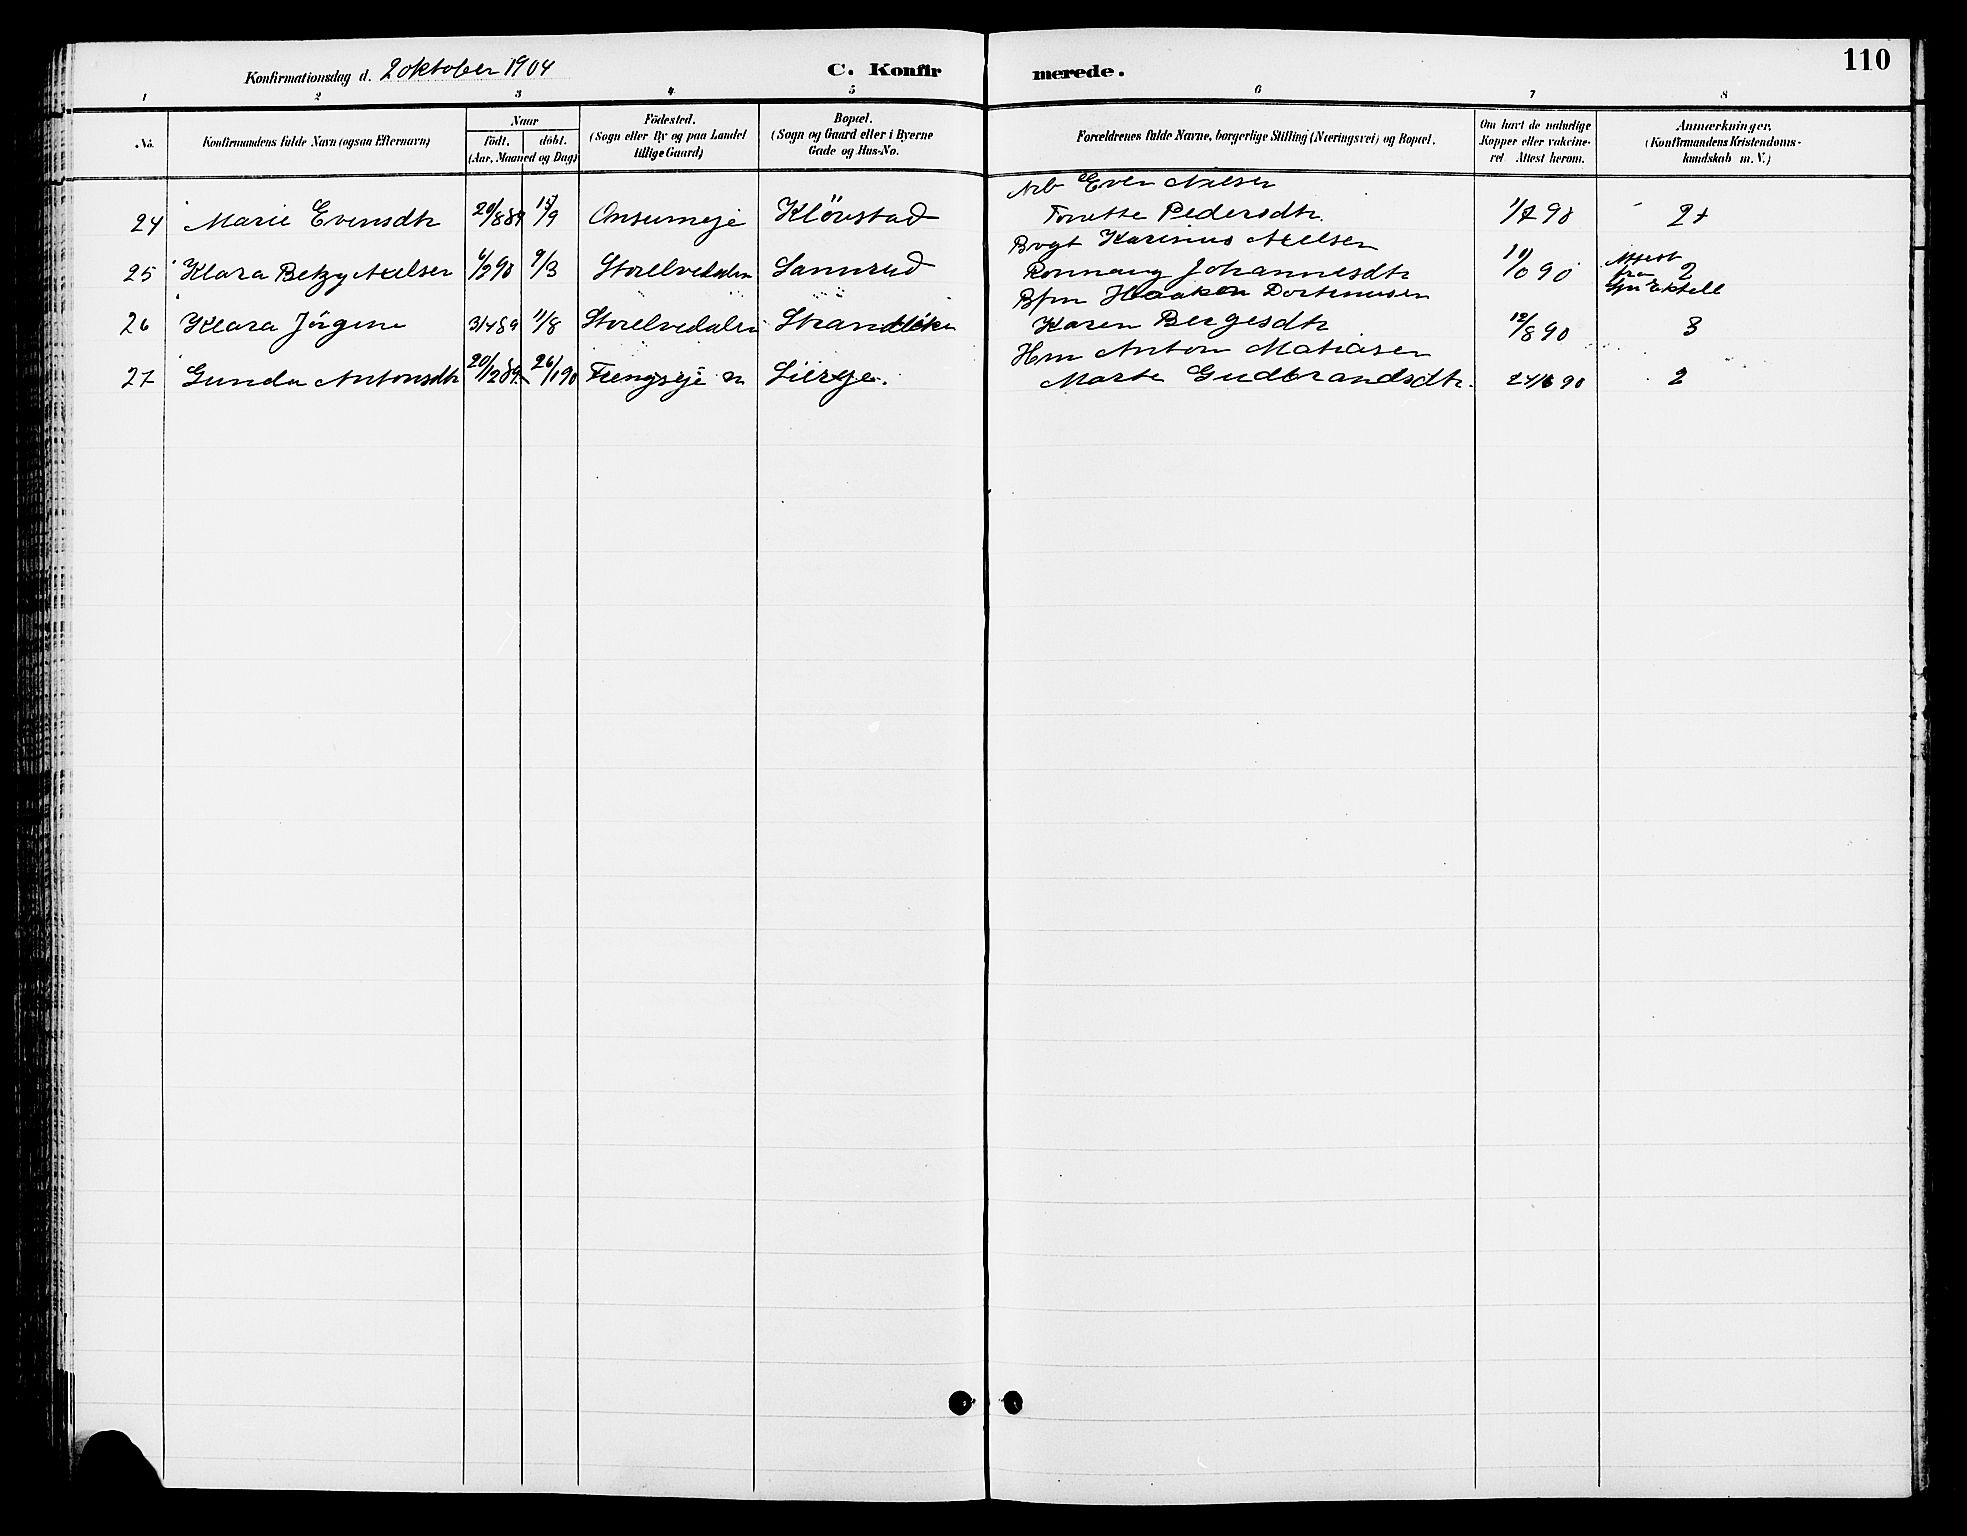 Konfirmationsdag d. 2 oktober 1904
C. Konfirmerede.
110
1 2 3 4 5 6 7 8
No.
Konfirmandens fulde Navn (ogsaa Efternavn)
Naar
födt, döbt.
(Aar, Maaned og Dag)
Födested.
(Sogn eller By og paa Landet
tillige Gaard)
Bopæl.
(Sogn og Gaard eller i Byerne
Gade og Hus-No.
Forældrenes fulde Navne, borgerlige Stilling (Næringsvei) og Bopæl.
Om havt de naturlige
Kopper eller vaccine-
ret Attest herom.
Anmærkninger.
(Konfirmandens Kristendoms-
kundskab m. V.)
Arb Even Nilsen
24 Marie Evensdtr 20/8 89 15/9 Onsumeje Klövstad Torette Pedersdtr. 1/7 90 2+
Bvgt Karinius Nilsen
25 Klara Betzy Nilsen 4/2 90 9/3 Storelvedalen Sannrud Rönnaug Johannesdtr 90 Attest fra 2
Haaken Dortinusen
26 Klara Jörgine 3/4 89 11/8 Storelvedalen Karen Bergesdtr 12/8 90 3
Hm Anton Matiasen
27 Gunda Antonsdtr 20/12 89 26/1 90 Marte Gudbrandsdtr. 24/6 90 2